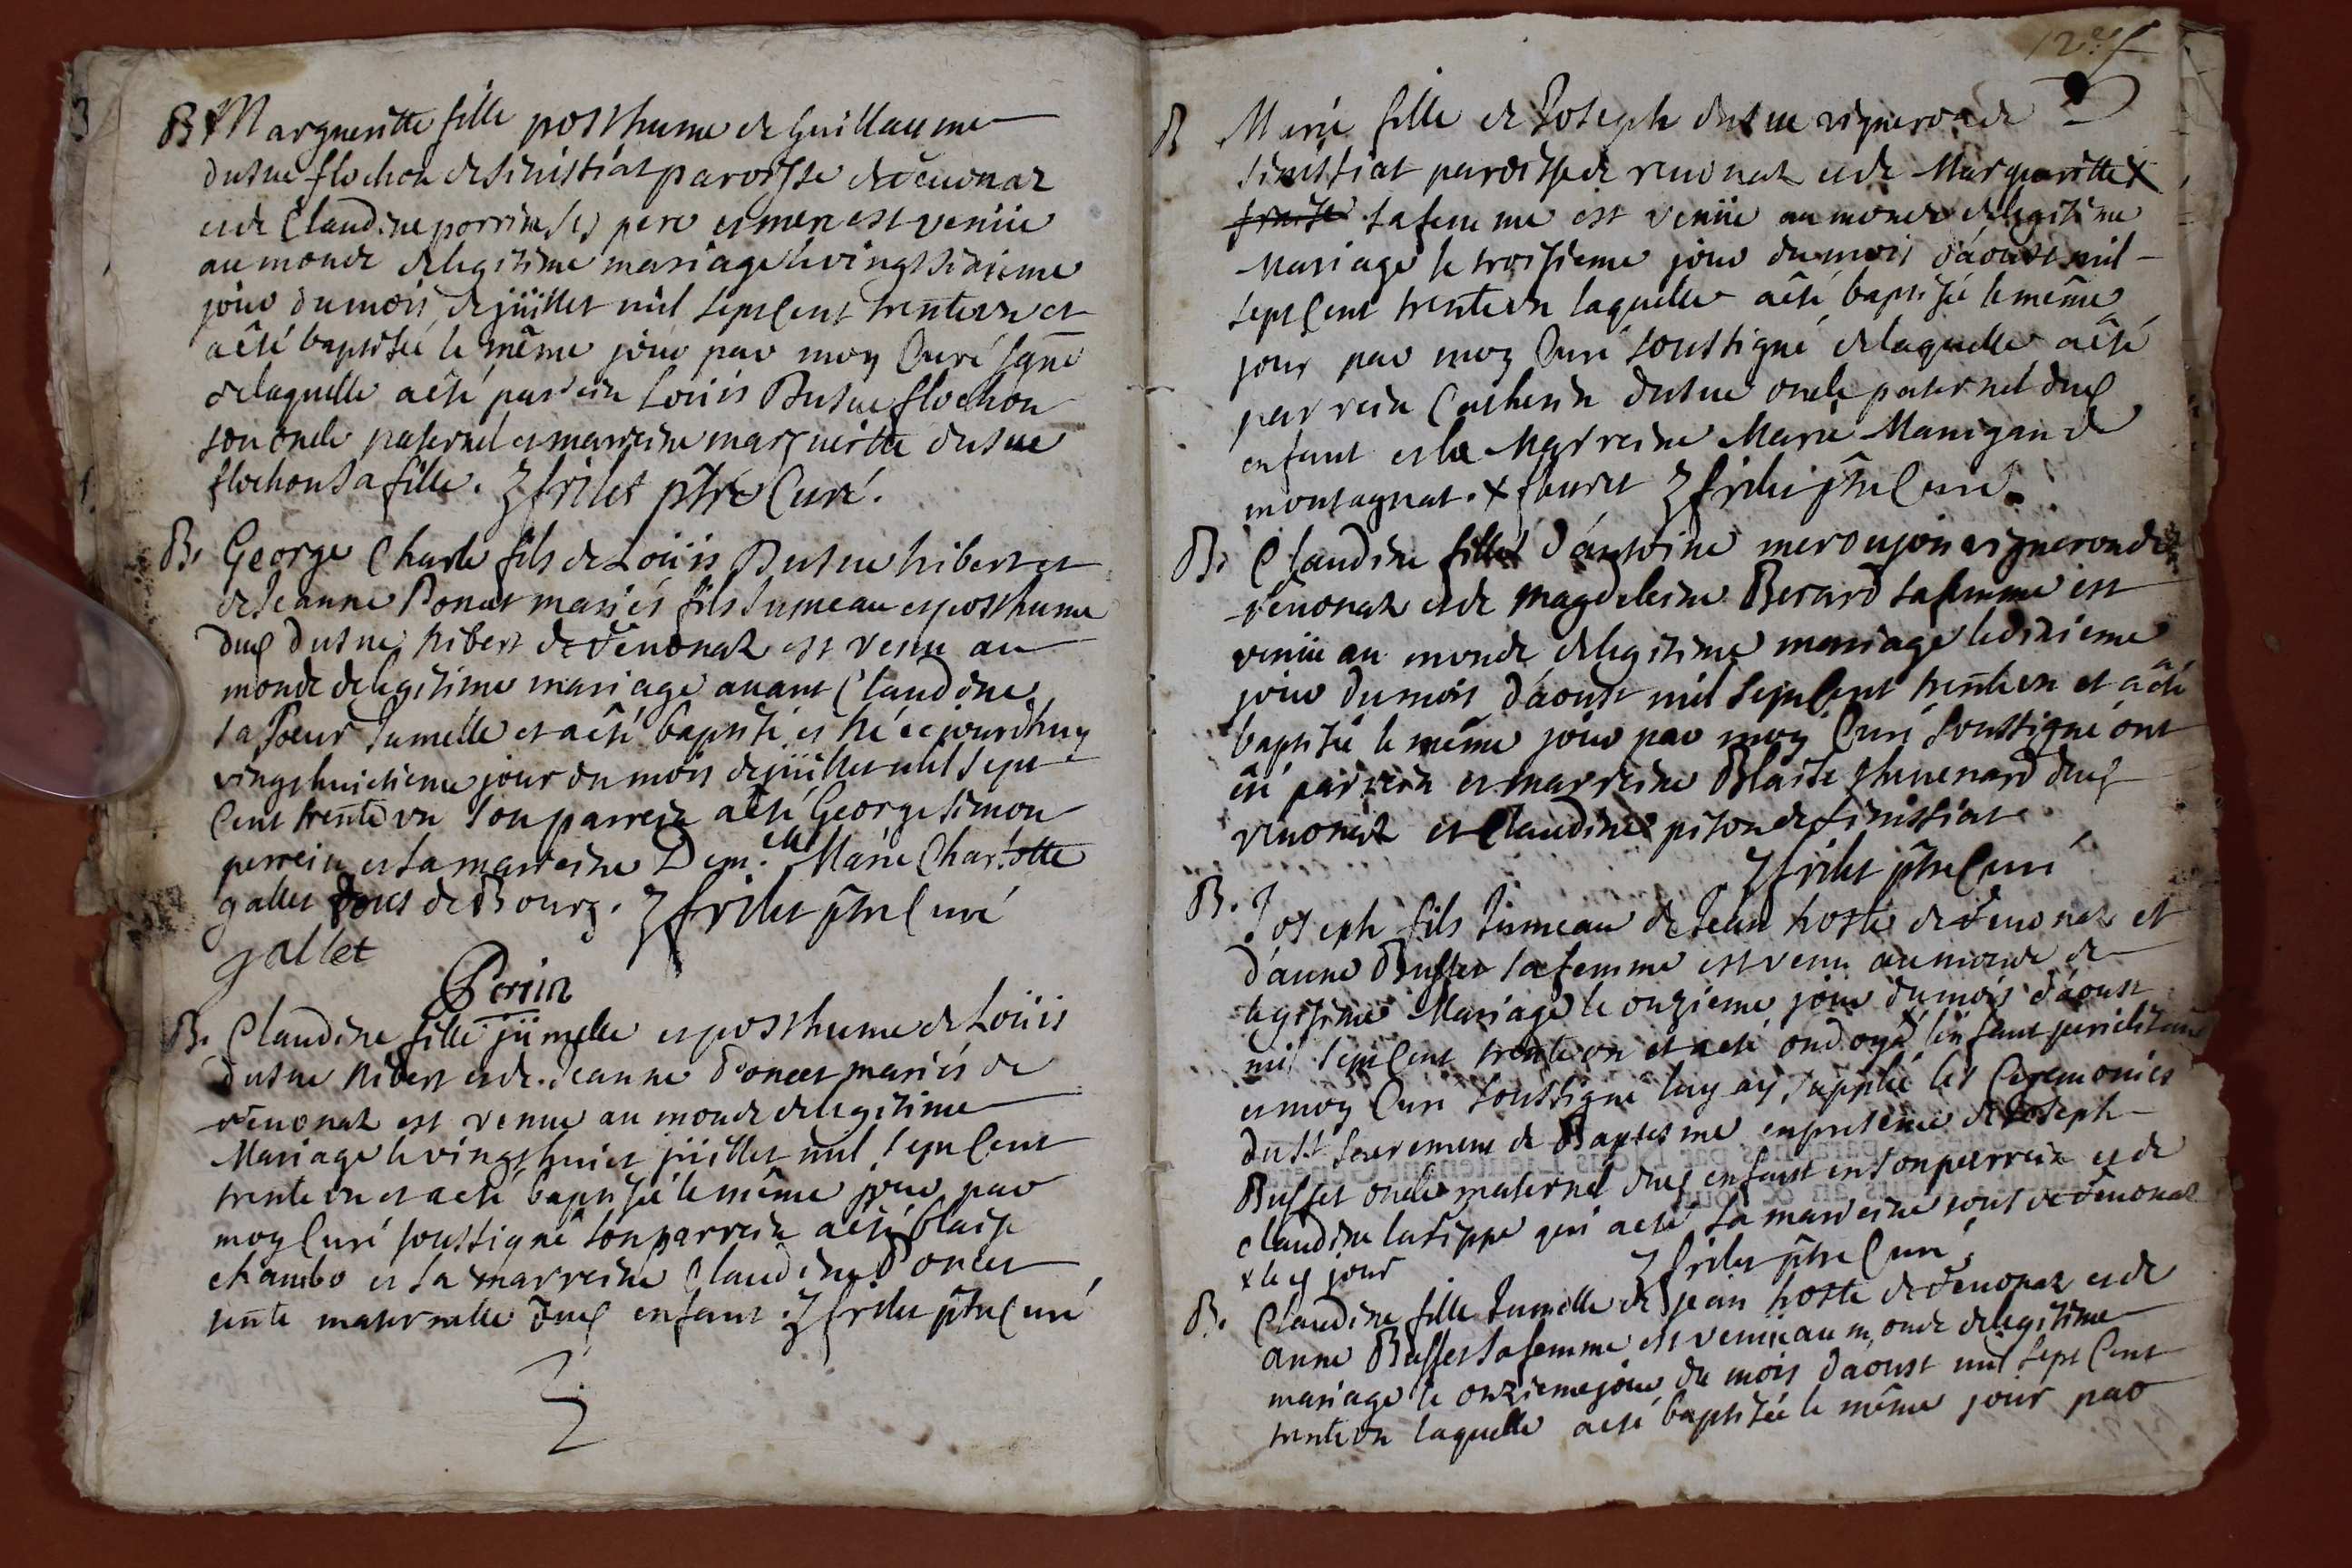 B Margueritte fille posthume de Guillaume
dusue flochon de sinissiat paroisse de reuonaz
et de Claudine perrin, ses pere et mere est venüe
au monde de legitime mariage le vingt sixieme
jour du mois de juillet mil sept Cent trente vn et
a êté baptisée le même jour par moy Curé sgne
de laquelle a êté parrein Loüis Dusue flochon
son oncle paternel et marreine marguerite dusue
flochon sa fille. Z frilet ptre Curé.
B. George Charle fils de Loüis Dusue hibert et
de Jeanne Poncet mariés fils Jumeau et posthume
dud dusue hibert de reuonaz est venu au
monde de legitime mariage auant Claudine
sa soeur Jumelle et a êté baptisé et né ce jourdhuy
vingt huictieme jour du mois de juillet mil sept
Cent trente vn son parrein a êté George Simon
perrein et sa marreine Dem.elle Marie Charlotte
gallet tous de Bourg. Z frilet ptre Curé
gallet
Perrin
B. Claudine fille jumelle et posthume de Loüis
dusue hibert et de Jeanne Poncet mariés de
reuonaz est venue au monde de legitime
Mariage le vingt huict juillet mil sept Cent
trente vn et a eté baptisée le même jour par
moy Curé soussigné son parrein a êté blaise
chambo et sa marreine Claudine Poncet
tente maternelle dud enfant. Z frilet ptre Curé
12e f
B Marie fille de Joseph dusue vigneron de
sinissiat paroisse de reuonaz et de Margueritte x
sa femme est venüe au monde de legitime
Mariage le troisieme jour du mois d'aoust mil
sept Cent trente vn laquelle a êté baptisée le même
jour par moy Curé soussigné de laquelle a êté
parrein Catherin dusue oncle paternel dud
enfant et la Marreine Marie Manigand de
montagnat. x Z frilet ptre Curé
B. Claudine fille d'antoine vigneron de
reuonaz et de magdeleine Berard sa femme est
venüe au monde de legitime mariage le dixieme
jour du mois d'aoust mil sept Cent trente vn et a eté
baptisée le même jour par moy Curé soussigné ont
été parrein et marreine Blaise theuenard dud
reuonaz et Claudine piton de sinissiat
Z frilet ptre Curé
B. Joseph fils Jumeau de Jean hoste de reuonaz et
d'anne Buffet sa femme est venu au monde de
legitime Mariage le onzieme jour du mois d'aoust
mil sept Cent trente vn et a eté ondoyé x l'enfant periclitant
et moy Curé soussigné luy ay supplée les Ceremonies
du st sacrement de Baptesme en presence de Joseph
Buffet oncle maternel dud enfant et son parrein et de
claudine qui a eté sa marreine tous de reuonaz
x led jour Z frilet ptre Curé.
B. Claudine fille Jumelle de Jean hoste de reuonaz et de
anne Buffet sa femme est venüe au monde de legitime
mariage le onzieme jour du mois d'aoust mil sept Cent
trente vn laquelle a eté baptisée le même jour par